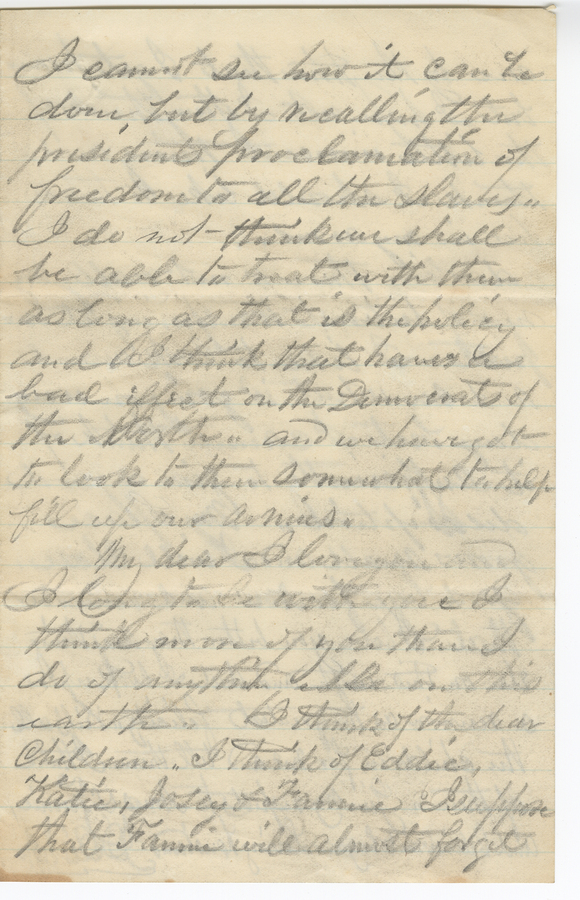 I cannot see how it can be
done, but by recalling the
presidents proclamation of
freedom to all the slaves..
I do not think we shall
be able to treat with them
as long as that is the policy
and I think that haves a
bad effect on the Democrats of
the North.. and we have got
to look to them somewhat to help
fill up our armies.
My dear I love you and
I long to be with you I
think more of you than I
do of anything else on this
earth.. I think of the dear
Children.. I think of Eddie,
Katie, Josey & Fannie I suppose
that Fannie will almost forget